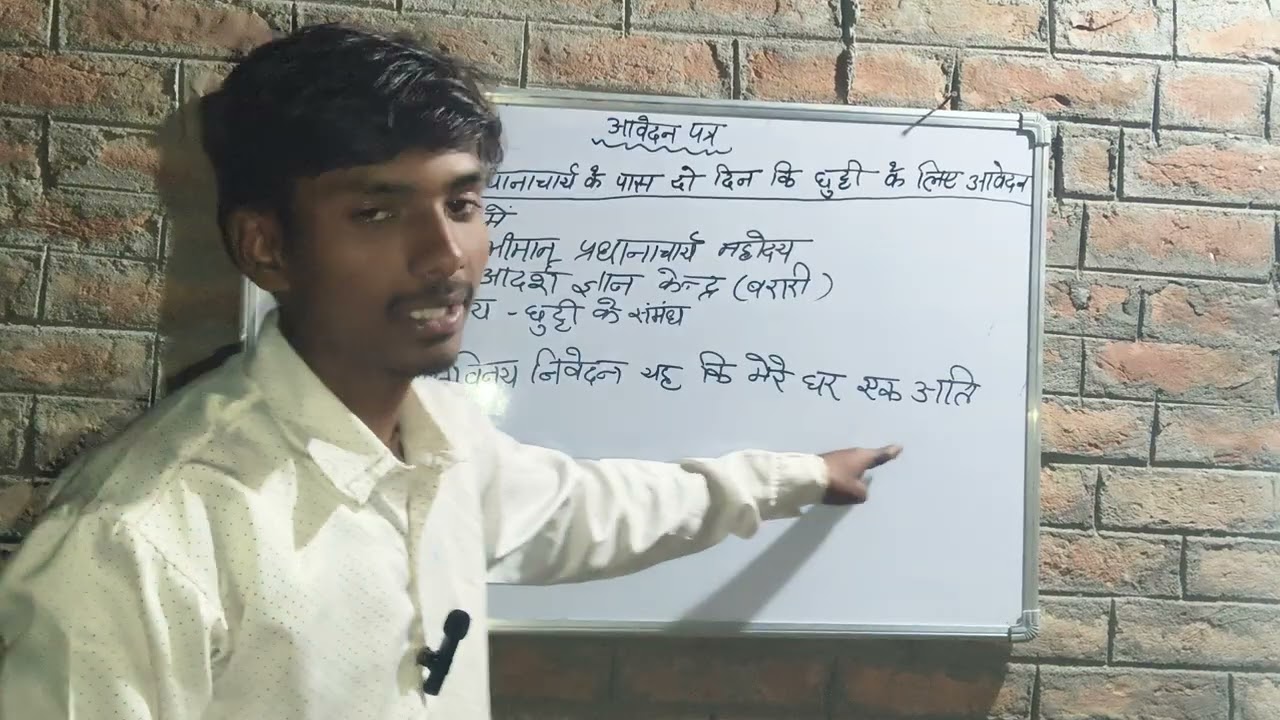 आवेदन पत्र
धानाचार्य के पास दो दिन कि छुट्टी के लिए आवेदन
में
श्रीमान् प्रधानाचार्य महोदय
आदर्श ज्ञान केन्द्र (बरारी)
य - छुट्टी के संमंध
सविनय निवेदन यह कि मेरे घर एक अति